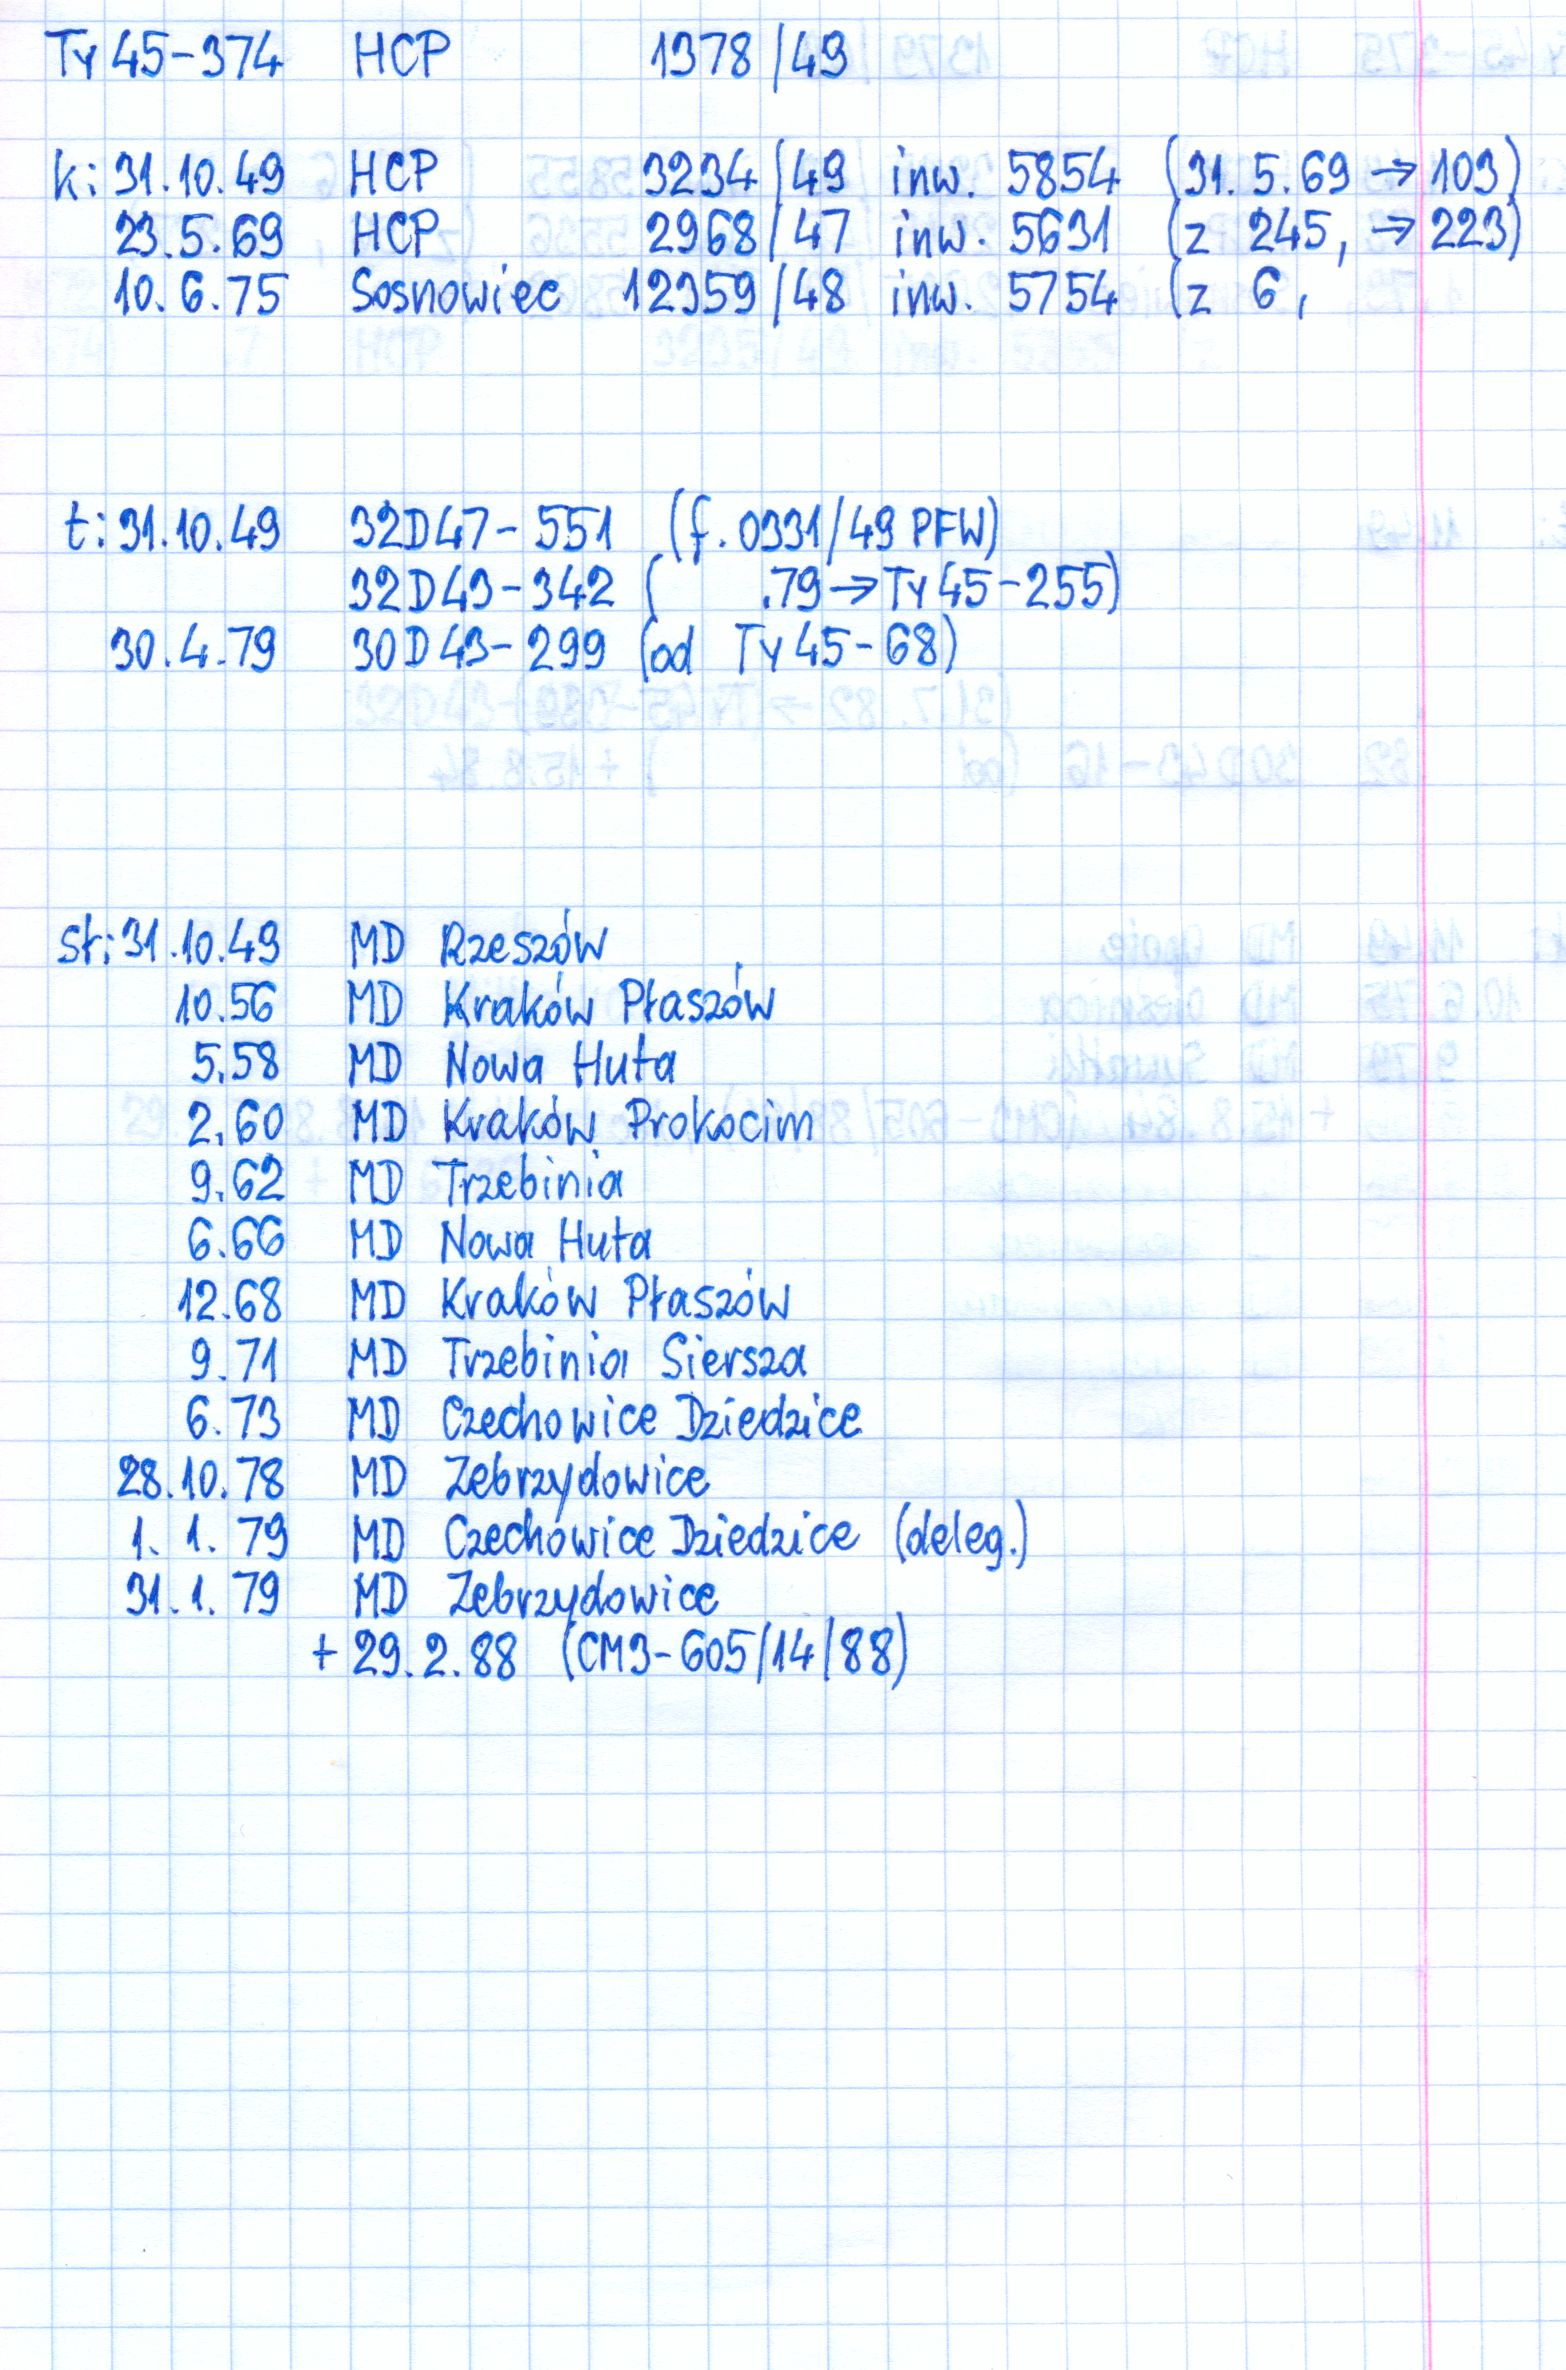 Ty 45-374 HCP 1378/49
k: 31.10.49 HCP 3234/49 inw. 5854 (31.5.69 → 103)
23.5.69 HCP 2968/47 inw. 5631 (z 245, → 223)
10.6.75 Sosnowiec 12959/48 inw. 5754 (z 6,
t: 31.10.49 32D47-551 (f. 0331/49 PFW)
32D43-342 ( .79 → Ty 45-255)
30.4.79 30D43-299 (od Ty 45-68)
st: 31.10.49 MD Rzeszów
10.56 MD Kraków Płaszów
5.58 MD Nowa Huta
2.60 MD Kraków Prokocim
9.62 MD Trzebinia
6.66 MD Nowa Huta
12.68 MD Kraków Płaszów
9.71 MD Trzebinia Siersza
6.73 MD Czechowice Dziedzice
28.10.78 MD Zebrzydowice
1.1.79 MD Czechowice Dziedzice (deleg.)
31.1.79 MD Zebrzydowice
+ 29.2.88 (CM3-605/14/88)